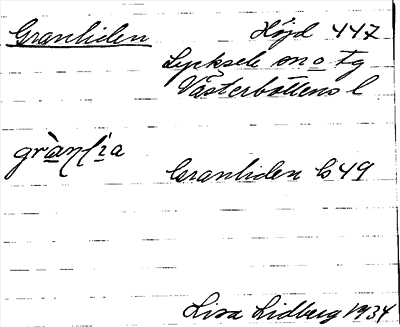 Granliden Höjd 447
Lycksele sn o tg
Västerbottens l
Granliden b 49
Lisa Lidberg 1934